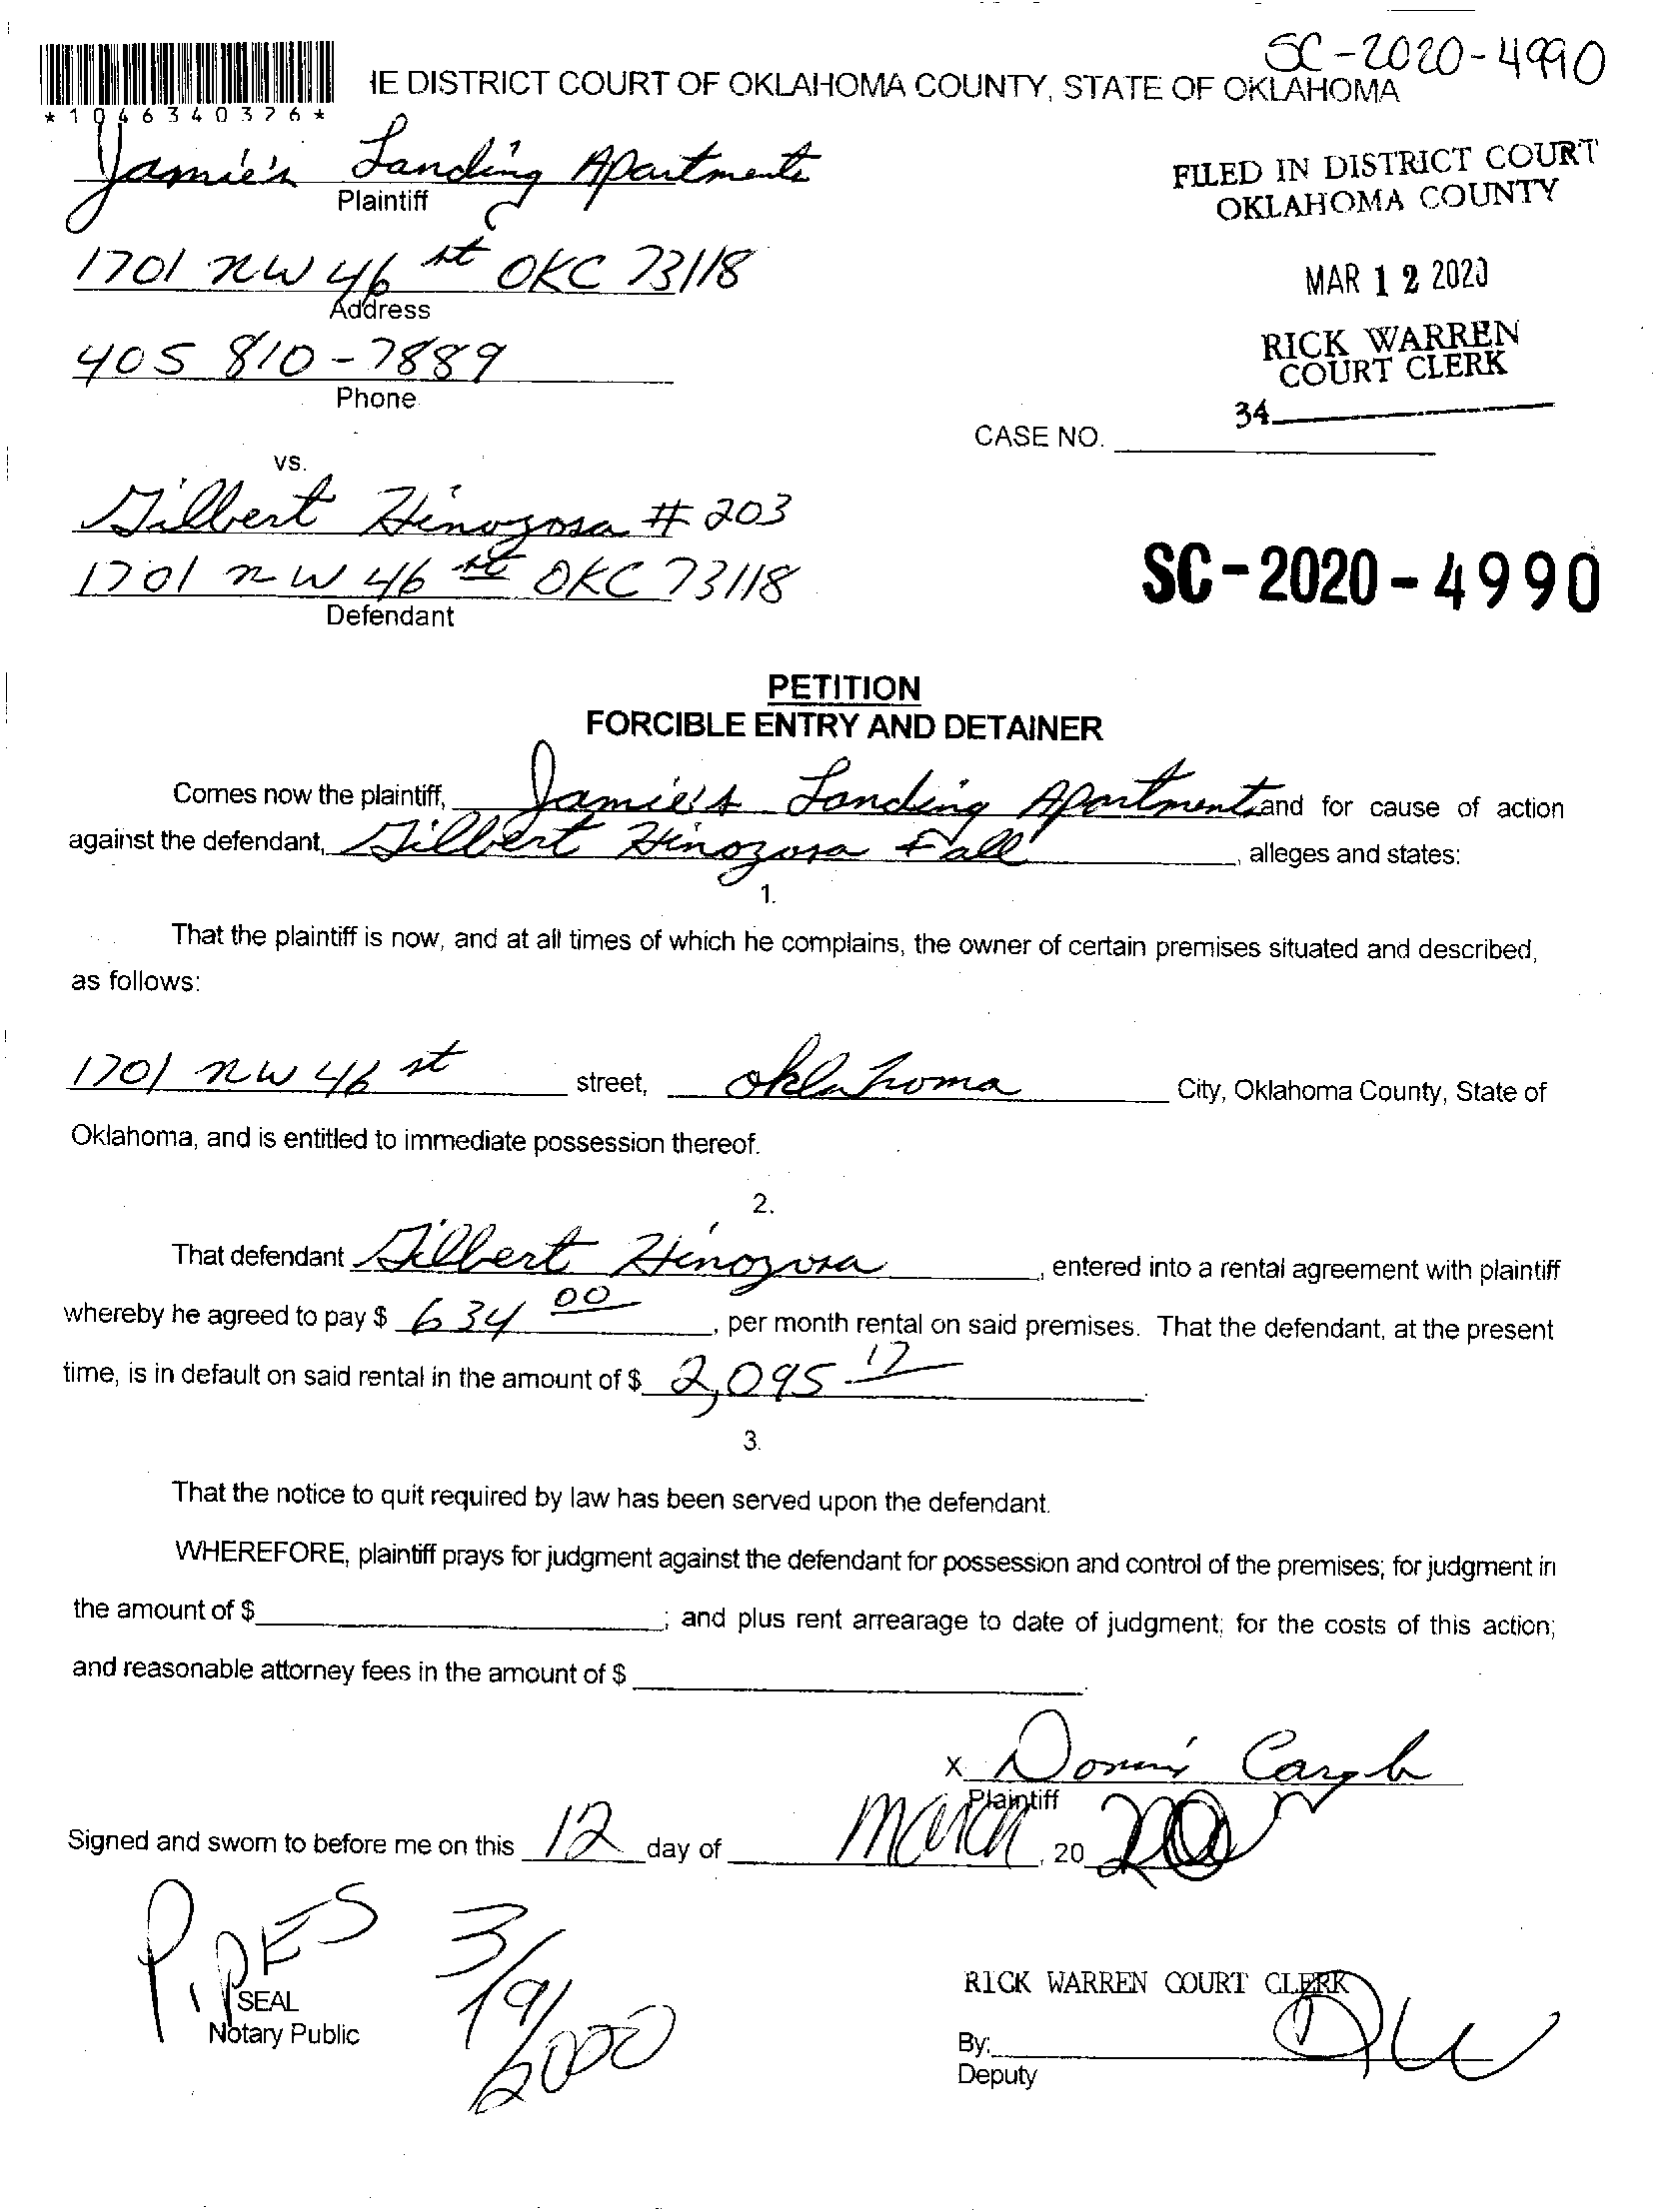 SC-2020-4990
IE DISTRICT COURT OF OKLAHOMA COUNTY, STATE OF OKLAHOMA
*1046340326*
Jamie's Landing Apartments
Plaintiff
FILED IN DISTRICT COURT
OKLAHOMA COUNTY
1701 NW 46 st OKC 73118
Address
MAR 12 2020
405 810-7889
Phone
RICK WARREN
COURT CLERK
34
CASE NO.
vs.
Gilbert Hinozosa # 203
1701 NW 46 st OKC 73118
Defendant
SC-2020-4990
PETITION
FORCIBLE ENTRY AND DETAINER
Comes now the plaintiff, Jamie's Landing Apartment and for cause of action
against the defendant, Gilbert Hinozosa + all, alleges and states:
1.
That the plaintiff is now, and at all times of which he complains, the owner of certain premises situated and described,
as follows:
1701 NW 46 st street, Oklahoma City, Oklahoma County, State of
Oklahoma, and is entitled to immediate possession thereof.
2.
That defendant Gilbert Hinozosa, entered into a rental agreement with plaintiff
whereby he agreed to pay $ 634 00, per month rental on said premises. That the defendant, at the present
time, is in default on said rental in the amount of $ 2,095 17.
3.
That the notice to quit required by law has been served upon the defendant.
WHEREFORE, plaintiff prays for judgment against the defendant for possession and control of the premises; for judgment in
the amount of $ ; and plus rent arrearage to date of judgment; for the costs of this action;
and reasonable attorney fees in the amount of $ .
X
Plaintiff
Signed and sworn to before me on this 12 day of March, 20 20
SEAL
Notary Public
RICK WARREN COURT CLERK
By:
Deputy